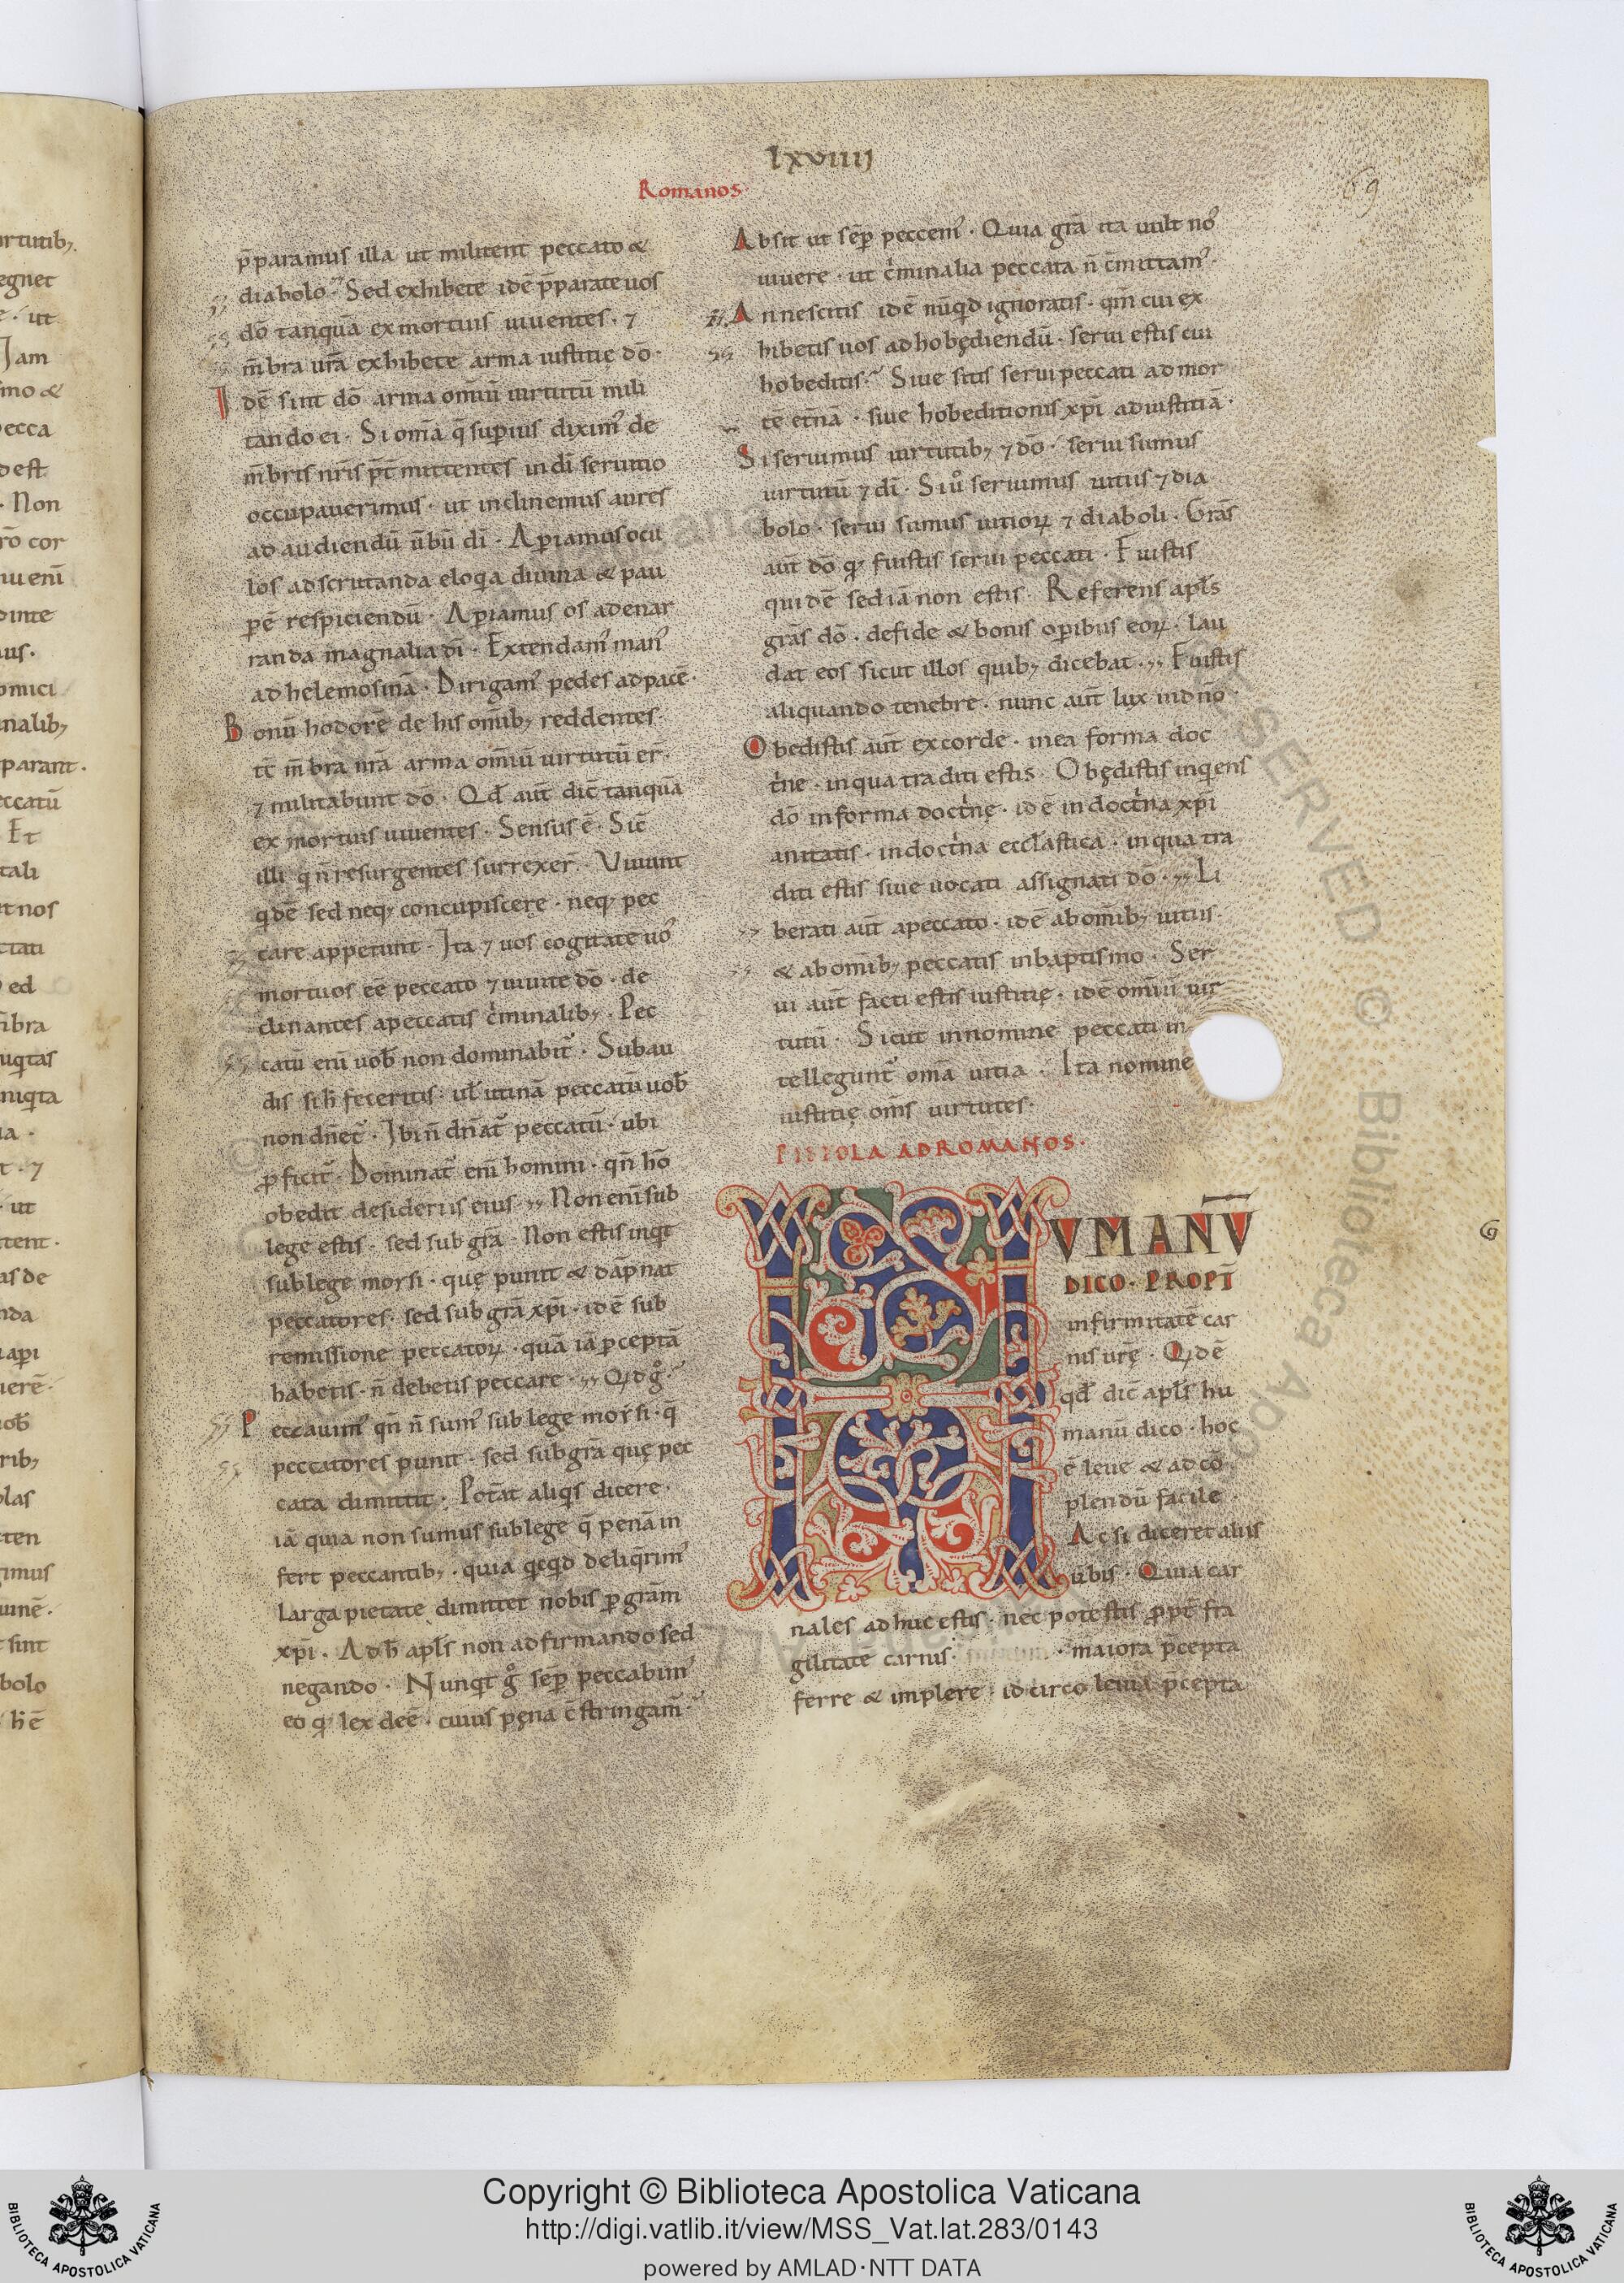 lxviiii
Romanos.
69
p̄paramus illa ut militent peccato &
diabolo. Sed exhibete idē p̄parate uos
dō tanquā ex mortuis uiuentes. ⁊
m̄bra ur̄a exhibete arma iustitię dō.
Idē sint dō arma omiū uirtutū mili
tando ei. Si om̄a q̄ superius diximꝰ de
m̄bris nr̄is p̄t mittentes in dī seruitio
occupauerimus. ut inclinemus aures
ad audiendū ūbū dī. Aperiamus ocu
los ad scrutanda eloq̄a diuina & pau
perē respiciendū. Aperiamus os ad enar
randa magnalia dī. Extendamꝰ manꝰ
ad helemosinā. Dirigamꝰ pedes ad pacē.
Bonū hodorē de his omībꝫ reddentes.
tc̄ m̄bra nr̄a arma omiū uirtutū er̄.
⁊ militabunt dō. Qd̄ aut̄ dic̄ tanquā
ex mortuis uiuentes. Sensus ē. Sic̄
illi q̄ n̄ resurgentes surrexer̄. Viuunt
q̄dē sed neqꝫ concupiscere. neqꝫ pec
care appetunt. Ita ⁊ uos cogitate uoꝰ
mortuos eē peccato ⁊ uiuite dō. de
clinantes a peccatis cͥminalibꝫ. Pec
catū enī uob̄ non dominabit᷑. Subau
dis si h̄ feceritis. ul̄ utinā peccatū uob̄
non dn̄et᷑. Ibi n̄ dn̄at᷑ peccatū. ubi
perficit᷑. Dominat᷑ enī homini. qn̄ hō
obedit desideriis eius. Non enī sub
lege estis. sed sub grā. Non estis inq̄t
sub lege morsi. quę punit & dāpnat
peccatores. sed sub grā xp̄i. idē sub
remissione peccatoꝝ. quā iā perceptā
habetis. n̄ debetis peccare. Qd gͦ.
Peccauimꝰ qn̄ n̄ sumꝰ sub lege morsi. q̄
peccatores punit. sed sub grā quę pec
cata dimittit. Potāt aliqis dicere.
iā quia non sumus sub lege q̄ penā in
fert peccantibꝫ. quia q̄cq̄d deliq̄rimꝰ
larga pietate dimittet nobis per grām
xp̄i. Ad h̄ apl̄s non adfirmando sed
negando. Nunq̄t gͦ sēp peccabimꝰ
eo qͦ lex deē. cuius pęna c̄stringam᷑.
Absit ut sēp peccemꝰ. Quia grā ita uult noꝰ
uiuere. ut cͥminalia peccata n̄ c̄mittamꝰ.
An nescitis idē nūqd ignoratis. qm̄ cui ex
hibetis uos ad hobędiendū. serui estis cui
hobeditis. Siue sitis serui peccati ad mor
tē et̄nā. siue hobeditionis xp̄i ad iustitiā.
Si seruimus uirtutibꝫ ⁊ dō. serui sumus
uirtutū ⁊ dī. Si uͦ seruimus uitiis ⁊ dia
bolo. serui sumus uitioꝝ ⁊ diaboli. Grās
aut̄ dō qͦ fuistis serui peccati. Fuistis
quidē sed iā non estis. Referens apl̄s
grās dō. de fide & bonis operibus eoꝝ. lau
dat eos sicut illos quibꝫ dicebat. Fuistis
aliquando tenebre. nunc aut̄ lux in dn̄o.
Obedistis aut̄ ex corde. in ea forma doc
tͥne. in qua traditi estis. Obędistis inq̄ens
dō in forma doctͥnę. idē in doctͥna xp̄i
anitatis. in doctͥna eccl̄astica. in qua tra
diti estis siue uocati assignati dō. Li
berati aut̄ a peccato. idē ab omībꝫ uitiis.
& ab omībꝫ peccatis in baptismo. Ser
ui aut̄ facti estis iustitię. idē omiū uir
tutū. Sicut in nomine peccati in
tellegunt᷑ om̄a uitia. Ita nomine
iustitię om̄s uirtutes.
PISTOLA AD ROMANOS.
HVMANV̄
DICO. PROPT̄
infirmitatē car
nis urę̄. Qdē
qd̄ dic̄ apl̄s hu
manū dico. hoc
ē leue & ad cō
plendū facile.
Ac si diceret aliis
ūbis. Quia car
nales adhuc estis. nec potestis propt̄ fra
gilitate carnis. maiora p̄cepta
ferre & implere. idcirco leuia p̄cepta
G
Copyright © Biblioteca Apostolica Vaticana
http://digi.vatlib.it/view/MSS_Vat.lat.283/0143
powered by AMLAD·NTT DATA
BIBLIOTECA APOSTOLICA VATICANA
BIBLIOTECA APOSTOLICA VATICANA